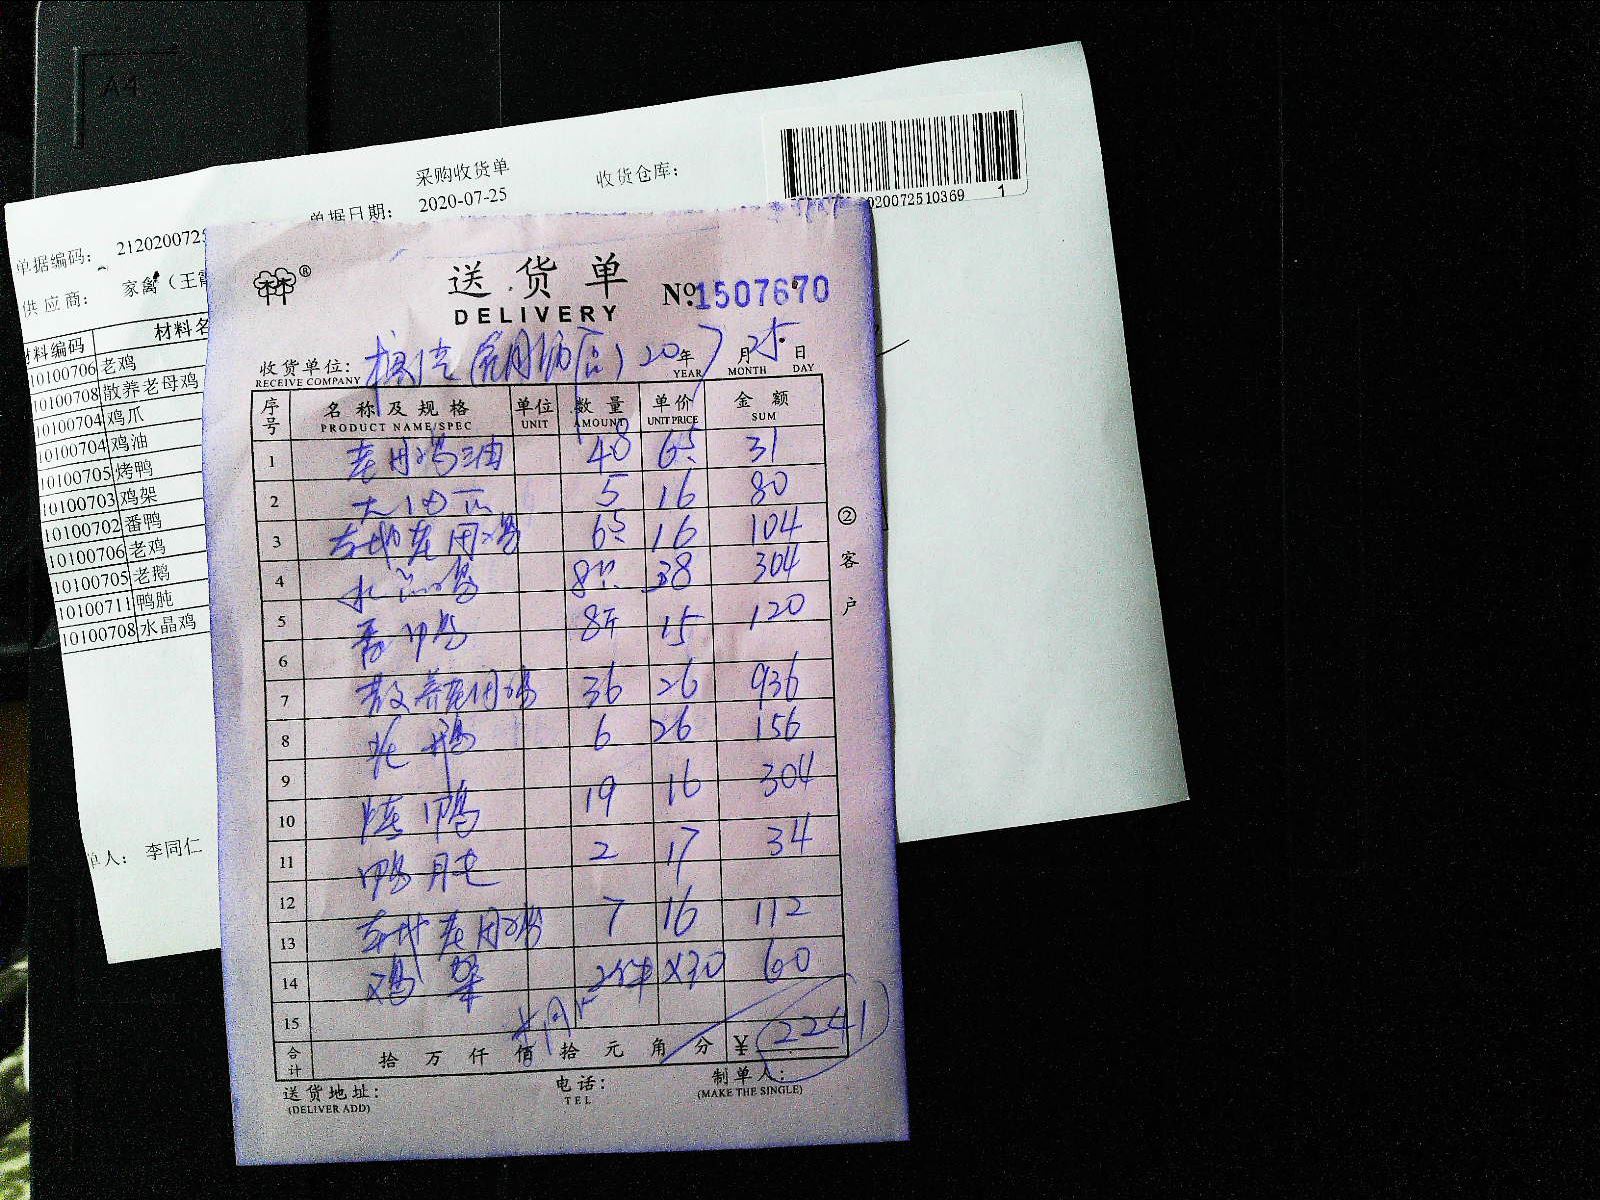 A4
采购收货单
单据日期： 2020-07-25 收货仓库：
020072510369 1
单据编码： 2120200725
供应商： 家禽（王霞
材料编码 材料名
10100706 老鸡
10100708 散养老母鸡
10100704 鸡爪
10100704 鸡油
10100705 烤鸭
10100703 鸡架
10100702 番鸭
10100706 老鸡
10100705 老鹅
10100711 鸭肫
10100708 水晶鸡
单人： 李同仁
林®
送货单
DELIVERY
No. 1507670
收货单位： 20年 7月 25日
RECEIVE COMPANY YEAR MONTH DAY
序号 名称及规格 单位 数量 单价 金额
PRODUCT NAME/SPEC UNIT AMOUNT UNIT PRICE SUM
1 老母鸡油 48 65 31
2 5 16 80
3 本地老母鸡 65 16 104
4 水晶鸡 8只 38 304
5 番鸭 8斤 15 120
6
7 散养老母鸡 36 26 936
8 老鹅 6 26 156
9
10 烤鸭 19 16 304
11 鸭肫 2 17 34
12
13 本地老母鸡 7 16 112
14 鸡架 2件 ×30 60
15
合计 拾 万 仟 佰 拾 元 角 分 ¥ 2241
送货地址： 电话： 制单人：
(DELIVER ADD) TEL (MAKE THE SINGLE)
② 客户